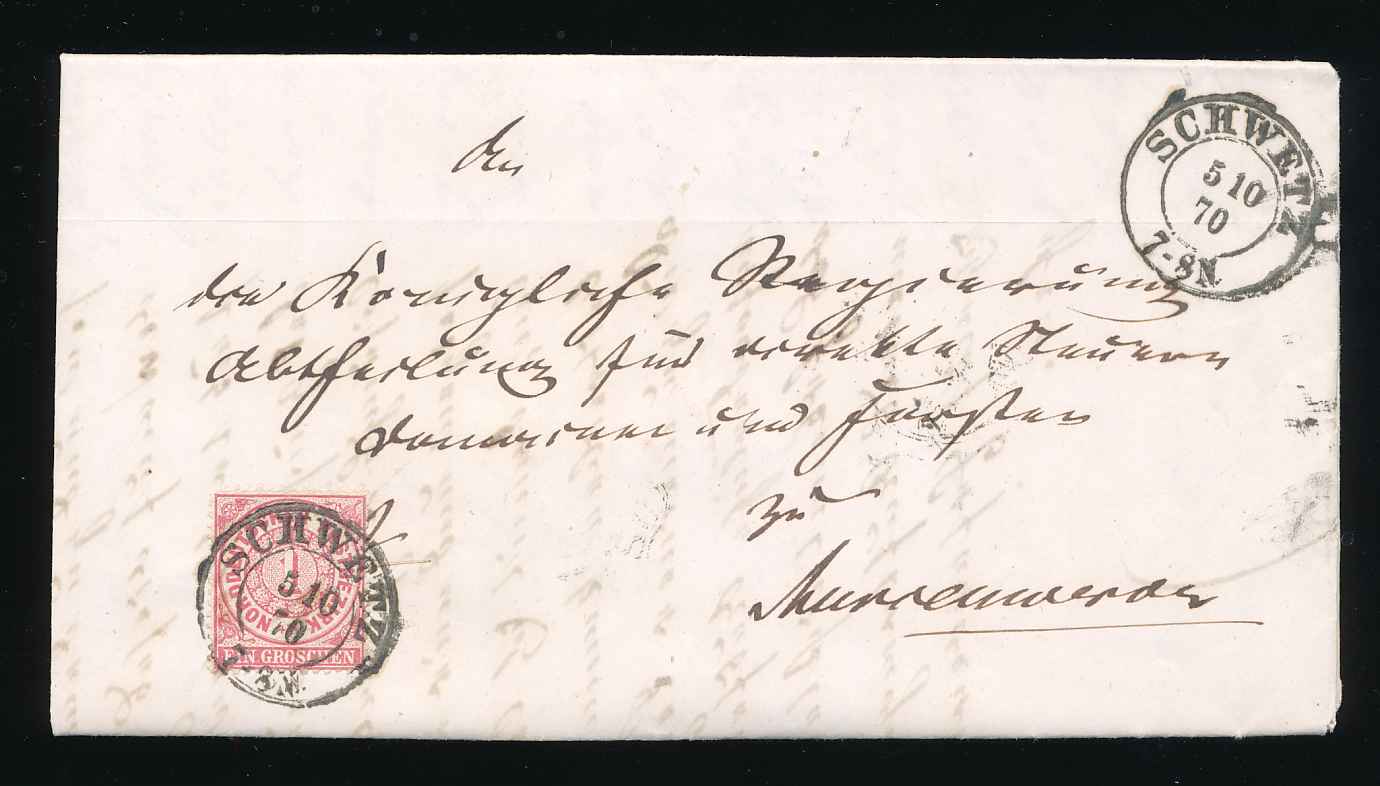 SCHWETZ
5 10
70
7-8N.
An
die Königliche Regierung
Abtheilung für direkte Steuern
Domainen und Forsten
zu
Marienwerder
SCHWETZ
5 10
70
7-8N.
1
EIN GROSCHEN